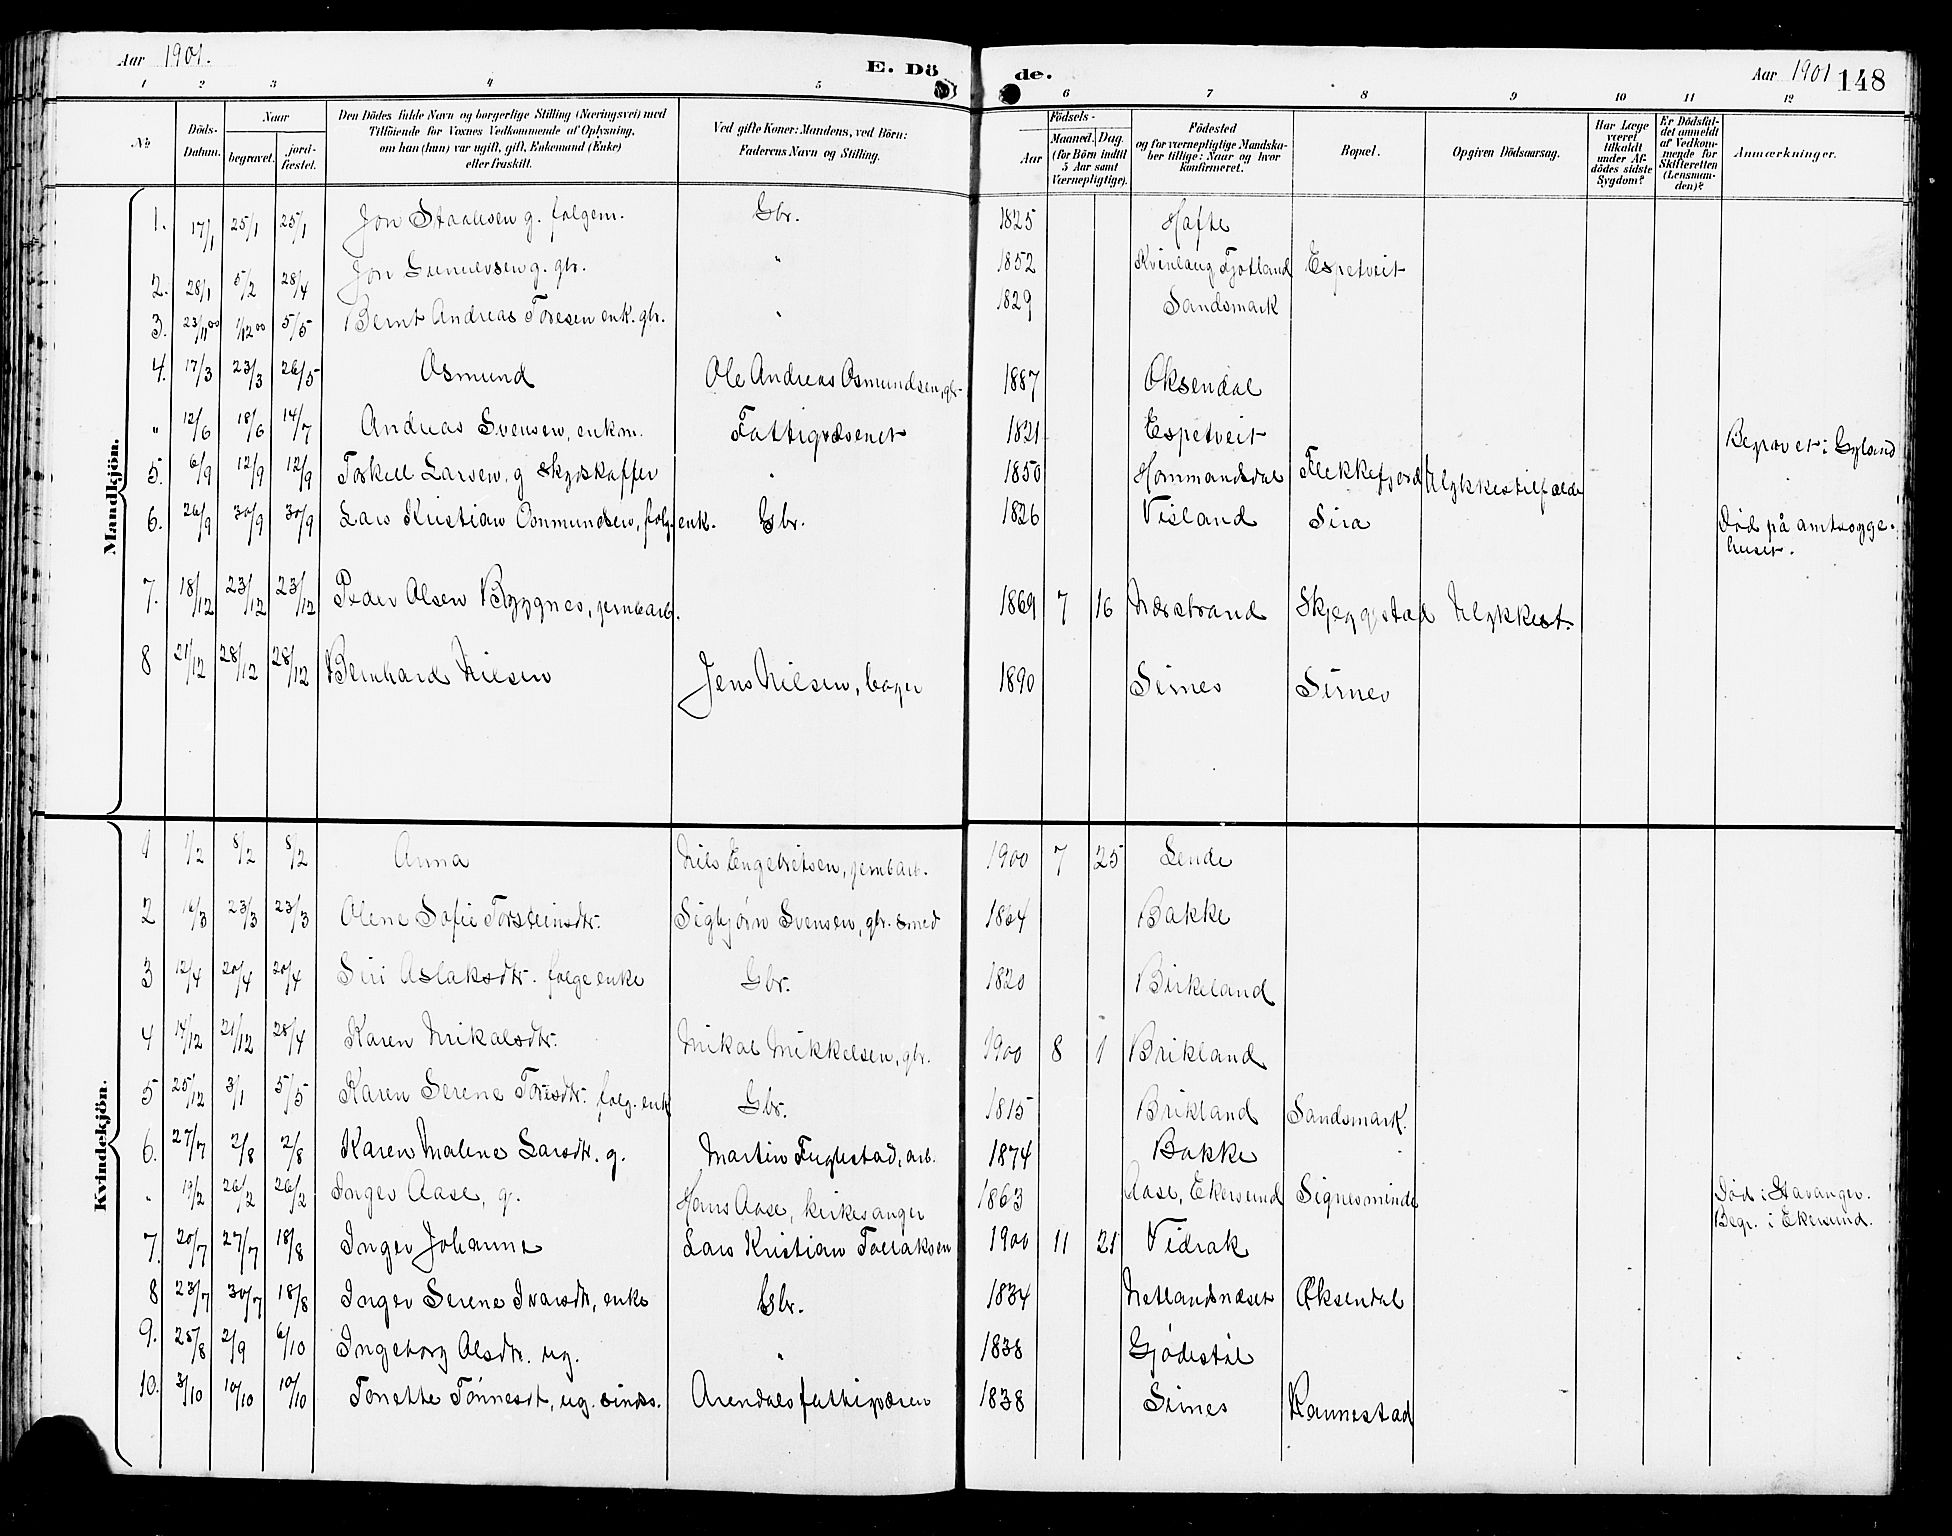 Aar 1901.
E. Döde.
Aar 1901 148
1 2 3 4 5 6 7 8 9 10 11 12
No.
Döds-Datum.
Naar
begravet.
jord-fæstet.
Den Dödes fulde Navn og borgerlige Stilling (Næringsvei) med
Tilföiende for Voxnes Vedkommende af Oplysning,
om han (hun) var ugift, gift, Enkemand (Enke)
eller fraskilt.
Ved gifte Koner: Mandens, ved Börn:
Faderens Navn og Stilling.
Födsels-
Aar
Maaned. Dag.
(for Börn indtil
5 Aar samt
Værnepligtige).
Födested
og for værnepligtige Mandska-
ber tillige: Naar og hvor
konfirmeret.
Bopæl.
Opgiven Dödsaarsag.
Har Læge
været
tilkaldt
under Af-
dödes sidste
Sygdom?
Er Dödsfal-
det anmeldt
af Vedkom-
mende for
Skifteretten
(Lensman-
den)?
Anmærkninger.
Mandkjön.
1. 17/1 25/1 25/1 Jon Staalesen g. folgem. Gbr. 1825 Hafte
2. 28/1 5/2 28/4 Jon Gunnuvsen g. gbr. " 1852 Kvinlaug Fjotland Espetveit
3. 23/11 00 1/12 00 5/5 Bernt Andreas Toresen enk. gbr. " 1829 Sandsmark
4. 17/3 23/3 26/5 Osmund Ole Andreas Osmundsen, gbr. 1887 Øksendal
" 12/6 18/6 14/7 Andreas Svensen, enkm. Fattigvæsenet 1821 Espetveit Begravet i Gyland
5. 6/9 12/9 12/9 Torkell Larsen, g skydskaffer " 1850 Hommandsdal Flekkefjord Ulykkestilfælde
6. 26/9 30/9 30/9 Lars Kristian Osmundsen, folg. enk. Gbr. 1826 Visland Sira Død på amtssyge-
huset.
7. 18/12 23/12 23/12 Peder Olsen Byggnes, jernbarb. 1869 7 16 Nærstrand Skjeggestad Ulykkest.
8 21/12 28/12 28/12 Bernhard Nilsen Jens Nilsen, bager 1890 Sirnes Sirnes
Kvindekjön.
1 1/2 8/2 8/2 Anna Nils Engebretsen, jernbarb. 1900 7 25 Lende
2 16/3 23/3 23/3 Olene Sofie Torsteinsdtr. Sigbjørn Svensen, gbr. smed 1864 Bakke
3 12/4 20/4 20/4 Siri Aslaksdtr. folgeenke Gbr. 1820 Birkeland
4 14/12 21/12 28/4 Karen Mikalsdtr. Mikal Mikkelsen, gbr. 1900 8 1 Brikland
5 25/12 3/1 5/5 Karen Serene Toresdtr. folg. enk Gbr. 1815 Brikland Sandsmark.
6. 27/7 2/8 2/8 Karen Malene Larsdtr. g. Martin Fuglestad, arb. 1874 Bakke
" 19/2 26/2 26/2 Inger Aase, g. Hans Aase, kirkesanger 1863 Aase, Ekersund Signesminde Død i Stavanger.
Begr. i Ekersund.
7. 20/7 27/7 18/8 Inger Johanne Lars Kristian Tollaksen 1900 11 21 Vidrak
8 23/7 30/7 18/8 Inger Serene Ivarsdtr, enke Gbr. 1834 Netlandsnæset Øksendal
9. 25/8 2/9 6/10 Ingeborg Olsdtr. ug. " 1838 Gjødestøl
10. 3/10 10/10 10/10 Tonette Tønnesdt, ug. sinds. Arendals fattigvæsen 1838 Sirnes Rannestad